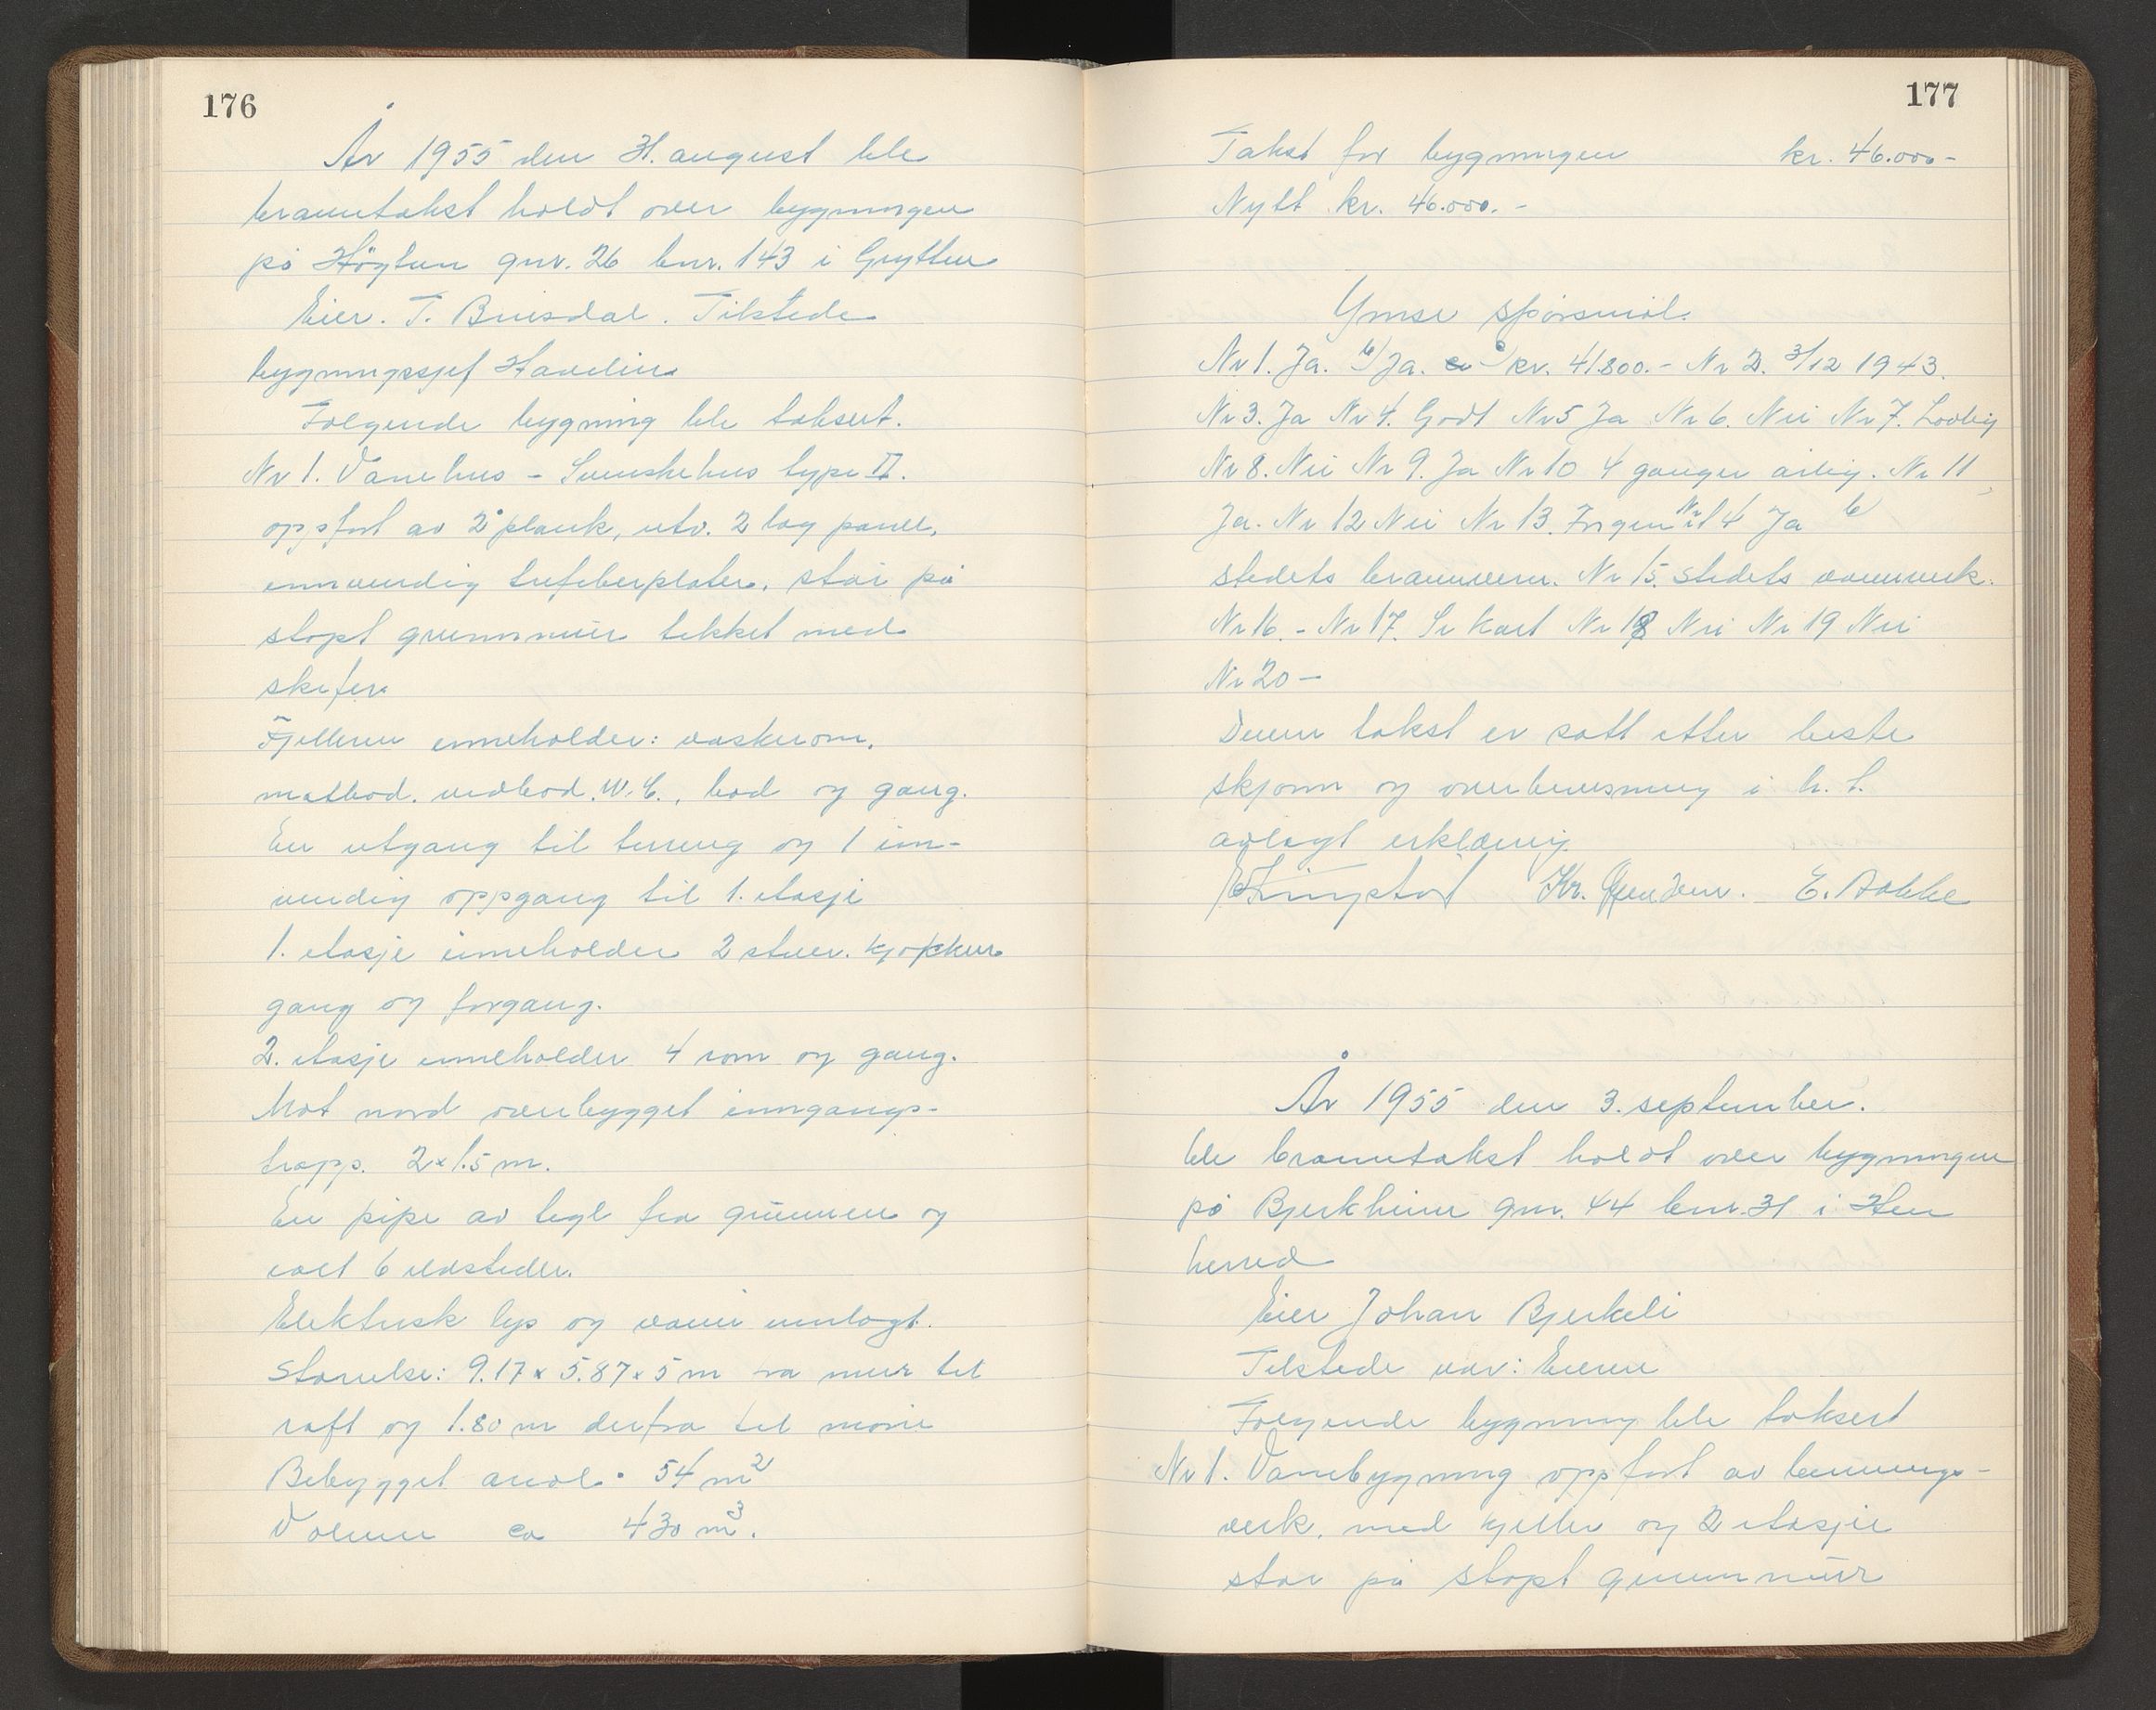 176
År 1955 den 31. august ble
branntakst holdt over bygningen
på Högtun gnr. 26 bnr. 143 i Grytten
Eier. T. Brusdal. Tilstede
bygningssjef Havelin.
Følgende bygning ble taksert.
Nr 1. Vånehus - Svenskehus type II.
oppfört av 2" plank, utv. 2 lag panel,
innvendig trefiberplater. står på
støpt grunnmur tekket med
skifer.
Kjelleren inneholder: vaskerom,
matbod. vedbod. W.C., bod og gang.
En utgang til terreng og 1 inn-
vendig oppgang til 1. etasje
1. etasje inneholder 2 stuer. kjøkken
gang og forgang.
2. etasje inneholder 4 rom og gang.
Mot nord overbygget inngangs-
trapp. 2 x 1.5 m.
En pipe av tegl fra grunnen og
ialt 6 ildsteder.
Elektrisk lys og vann innlagt.
Størrelse: 9.17 x 5.87 x 5 m ra mur til
raft og 1.80 m derfra til møne
Bebygget areal. 54 m²
Volum ca 430 m³.
177
Takst for bygningen kr. 46.000-
Nytt kr. 46.000.-
Ymse spørsmål.
Nr 1. Ja. b) Ja. c) kr. 41.800.- Nr 2. 3/12 1943.
Nr 3. Ja Nr 4. Godt Nr 5 Ja Nr 6. Nei Nr 7. Lovlig
Nr 8. Nei Nr 9. Ja Nr 10 4 ganger årlig. Nr 11
Ja. Nr 12 Nei Nr 13. Ingen Nr 14 Ja b)
stedets brannvern. Nr 15. Stedets vannverk.
Nr 16. - Nr 17. Se kart Nr 18 Nei Nr 19 Nei
Nr 20 -
Denne takst er satt etter beste
skjønn og overbevisning i h. t.
avlagt erklæring.
Kr. E. Aakke
År 1955 den 3. september.
ble branntakst holdt over bygningen
på Bjerkheim gnr. 44 bnr. 31 i Hen
herred
Eier Johan Bjerkeli
Tilstede var: Eieren
Følgende bygning ble taksert
Nr 1. Vånebygning oppført av binnings-
verk, med kjeller og 2 etasjer
står på støpt grunnmur